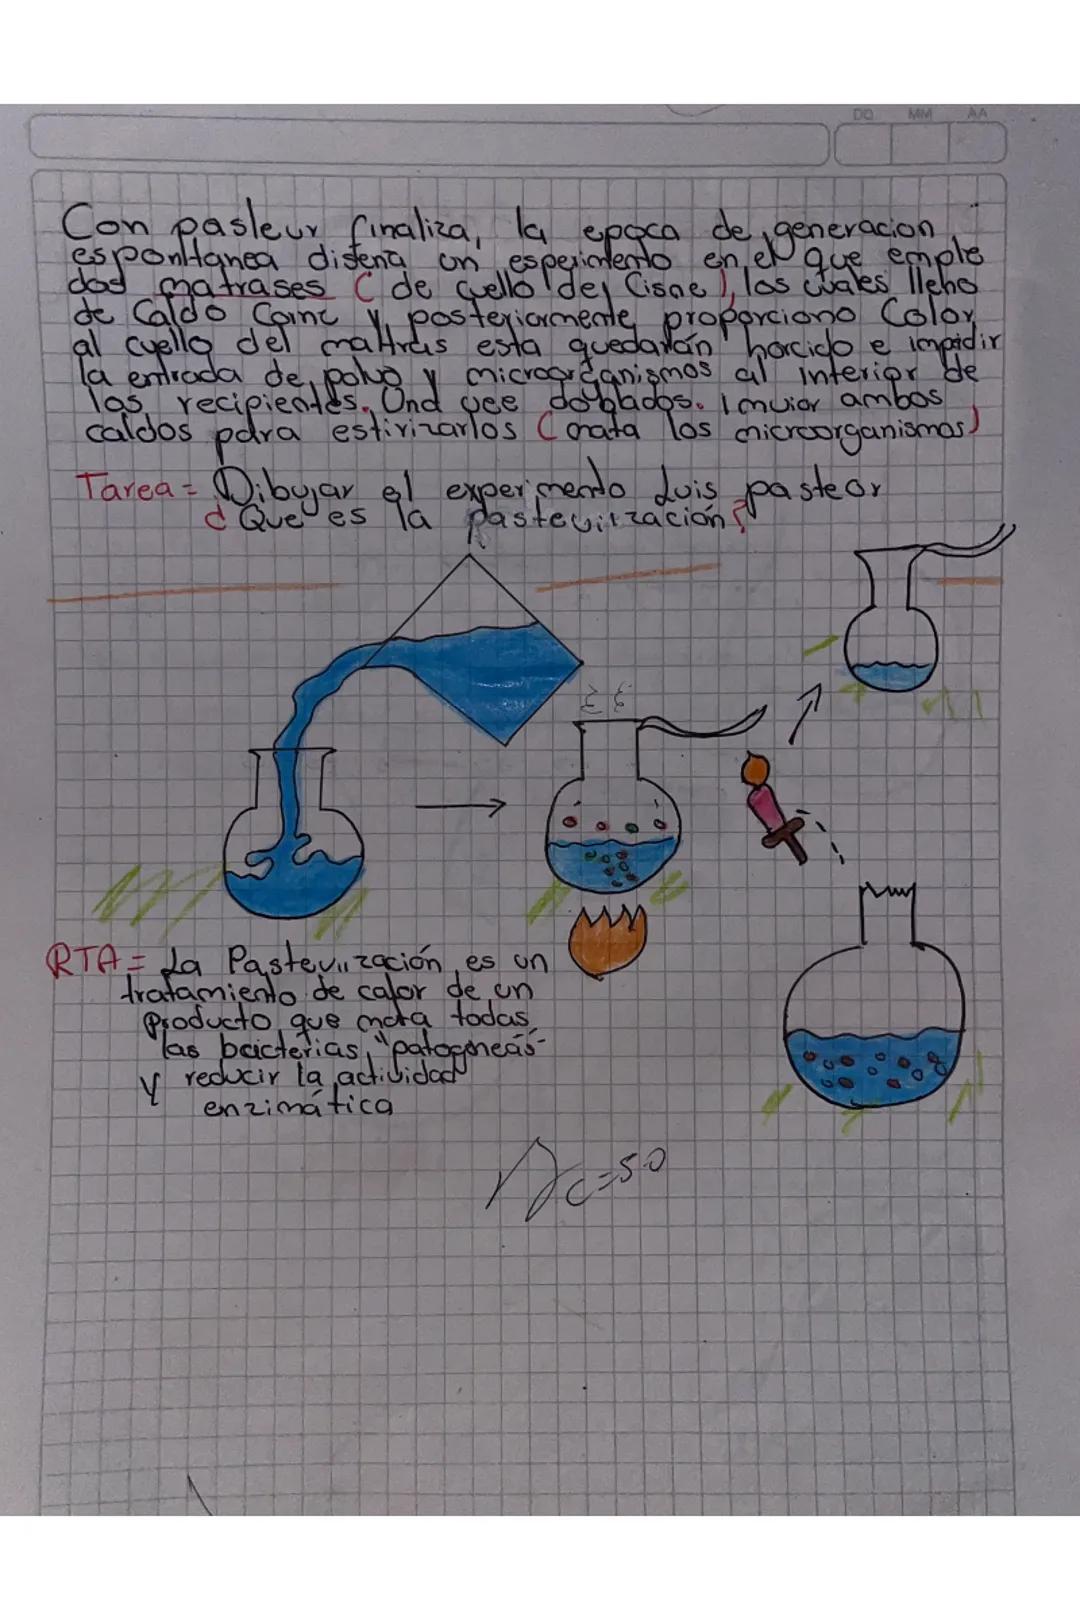 DD MM AA
Con pasleur finaliza, la epoca de generacion
espontanea diseña un esperimento en el que emple
dos matrases ( de cuello del Cisne ), los cuales lleno
de Caldo Carne y, posteriormente proporciono Calor
al cuello del mattras esta quedarán horcido e impidir
la entrada de, polvo y microorganismos al interior de
los recipientes. Und vee doblados. ambos
caldos para estirizarlos ( mata los microorganismos)
Tarea = Dibujar el experimento Luis pasteor
¿ Que es la pasteurización?
RTA = La Pasteurización, es un
tratamiento de calor de un
producto que mata todas
las bacterias, "patogneas"
y reducir la actividad
enzimática
C=5.0